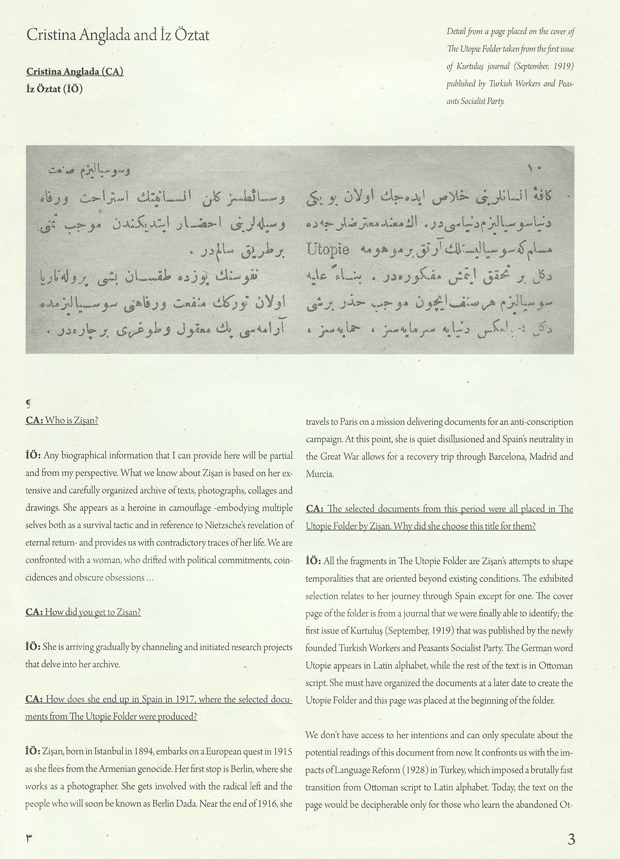 Cristina Anglada and İz Öztat
Cristina Anglada (CA)
İz Öztat (İÖ)
Detail from a page placed on the cover of
The Utopie Folder taken from the first issue
of Kurtuluş journal (September, 1919)
published by Turkish Workers and Peas-
ants Socialist Party.
١٠
كافهٔ انسانلرینی خلاص ایده جك اولان بو یكی
دنیا سوسیالیزم دنیاسی در. اك معند معترضلرجه ده
مسلم كه سوسیالیستلك آرتق بر موهومه Utopie
دكل بر تحقق ایتمش مفكوره در . بناءً علیه
سوسیالیزم هر صنف ایچون موجب حذر بر شی
دكل دنیایه سرمایه سز ، حمایه سز ،
وسوسیالیزم صنعت
وسائطسز كلن انسانیتك استراحت ورفاه
وسیله لرینی احضار ایتدیكندن موجب تمنی
بر طریق سالم در .
نفوسنك یوزده طقسان بشی پرولەتاریا
اولان توركك منفعت ورفاهنی سوسیالیزمده
آرامه سی پك معقول وطوغری بر چاره در .
¶
CA: Who is Zişan?
İÖ: Any biographical information that I can provide here will be partial
and from my perspective. What we know about Zişan is based on her ex-
tensive and carefully organized archive of texts, photographs, collages and
drawings. She appears as a heroine in camouflage -embodying multiple
selves both as a survival tactic and in reference to Nietzsche's revelation of
eternal return- and provides us with contradictory traces of her life. We are
confronted with a woman, who drifted with political commitments, coin-
cidences and obscure obsessions ...
CA: How did you get to Zişan?
İÖ: She is arriving gradually by channeling and initiated research projects
that delve into her archive.
CA: How does she end up in Spain in 1917, where the selected docu-
ments from The Utopie Folder were produced?
İÖ: Zişan, born in Istanbul in 1894, embarks on a European quest in 1915
as she flees from the Armenian genocide. Her first stop is Berlin, where she
works as a photographer. She gets involved with the radical left and the
people who will soon be known as Berlin Dada. Near the end of 1916, she
travels to Paris on a mission delivering documents for an anti-conscription
campaign. At this point, she is quiet disillusioned and Spain's neutrality in
the Great War allows for a recovery trip through Barcelona, Madrid and
Murcia.
CA: The selected documents from this period were all placed in The
Utopie Folder by Zişan. Why did she choose this title for them?
İÖ: All the fragments in The Utopie Folder are Zişan's attempts to shape
temporalities that are oriented beyond existing conditions. The exhibited
selection relates to her journey through Spain except for one. The cover
page of the folder is from a journal that we were finally able to identify; the
first issue of Kurtuluş (September, 1919) that was published by the newly
founded Turkish Workers and Peasants Socialist Party. The German word
Utopie appears in Latin alphabet, while the rest of the text is in Ottoman
script. She must have organized the documents at a later date to create the
Utopie Folder and this page was placed at the beginning of the folder.
We don't have access to her intentions and can only speculate about the
potential readings of this document from now. It confronts us with the im-
pacts of Language Reform (1928) in Turkey, which imposed a brutally fast
transition from Ottoman script to Latin alphabet. Today, the text on the
page would be decipherable only for those who learn the abandoned Ot-
٣
3